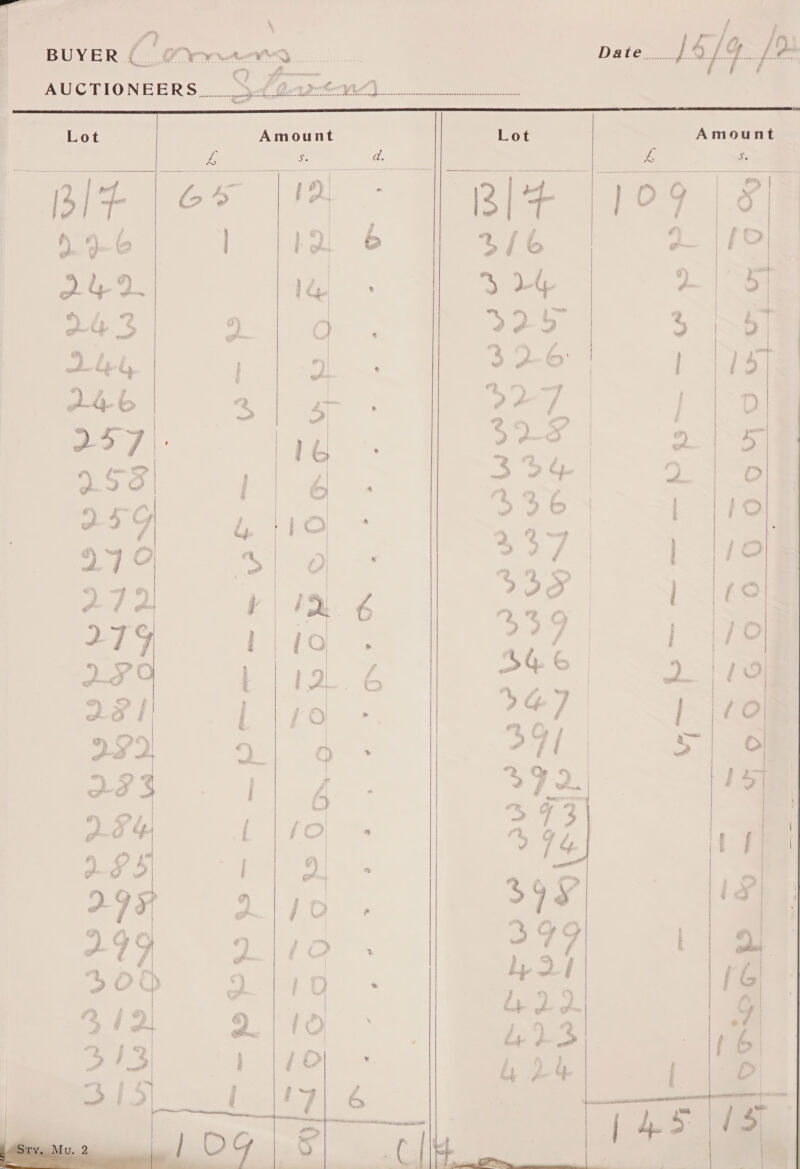 BUYER Comins Date 15/9/2
AUCTIONEERS Stevens
Lot Amount
£ s. d.
B/F 65 12 -
226 1 12 6
242 14 -
243 2 0 -
244 1 2 -
246 3 5 -
257 16 -
258 1 6 -
259 4 10 -
270 3 0 -
272 1 12 6
279 1 10 -
280 1 12 6
281 1 10 -
282 2 0 -
283 1 6 -
284 1 10 -
285 1 2 -
298 2 10 -
299 2 10 -
300 2 10 -
312 2 10 -
313 1 10 -
315 1 17 6
109 8 C/F
Lot Amount
£ s.
B/F 109 8
316 2 10
324 2 5
325 3 5
326 1 15
327 1 0
328 2 5
334 2 0
336 1 10
337 1 10
338 1 10
339 1 10
346 2 10
347 1 10
391 5 0
392 15
393
394 11
398 18
399 1 2
421 16
422 9
423 16
424 1 0
145 15
Sty. Mu. 2